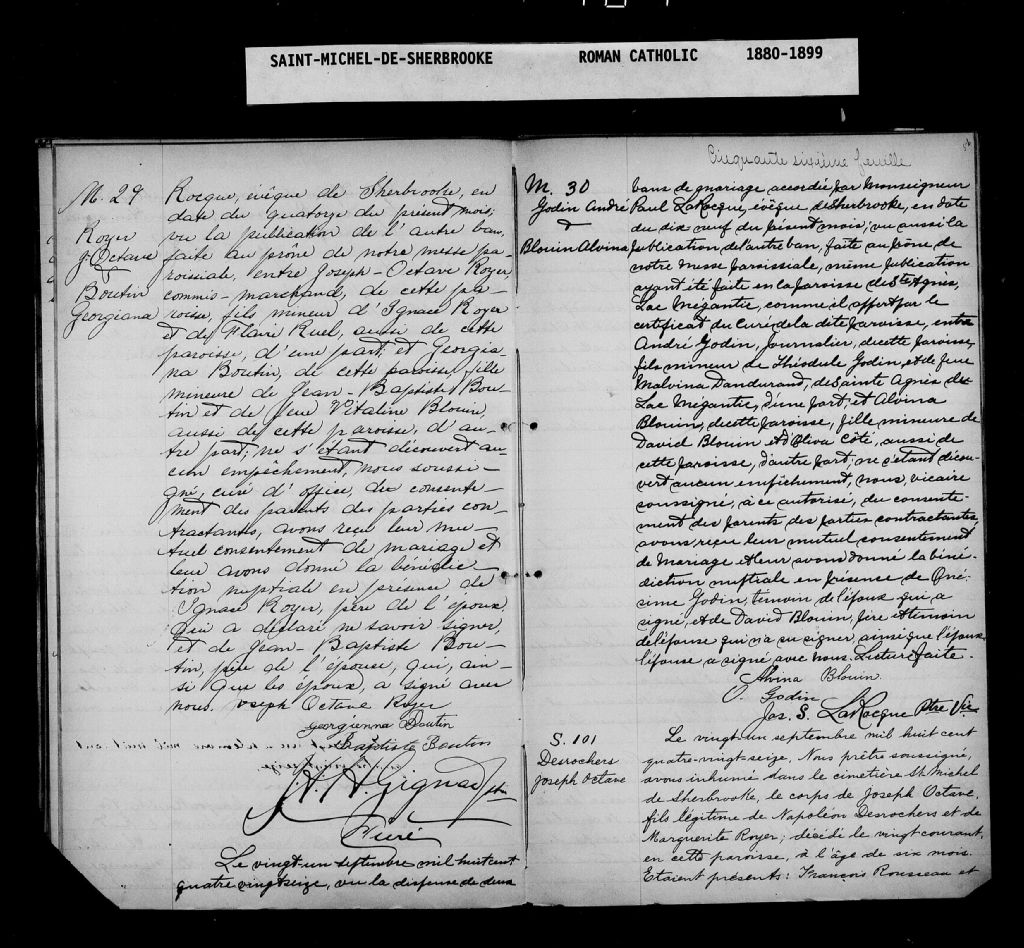 SAINT-MICHEL-DE-SHERBROOKE ROMAN CATHOLIC 1880-1899
M. 29
Royer
J. Octave
&
Boutin
Georgiana
Rocque, évêque de Sherbrooke, en
date du quatorze du présent mois;
vu la publication de l'autre ban,
faite au prône de notre messe pa-
roissiale, entre Joseph-Octave Royer,
commis-marchand, de cette pa-
roisse, fils mineur d'Ignace Royer
et de Flavie Ruel, aussi de cette
paroisse, d'une part; et Georgia-
na Boutin, de cette paroisse, fille
mineure de Jean-Baptiste Bou-
tin et de feu Vitaline Blouin,
aussi de cette paroisse, d'au-
tre part; ne s'étant découvert au-
cun empêchement, nous soussi-
gné, curé d'office, du consente-
ment des parents des parties con-
tractantes, avons reçu leur mu-
tuel consentement de mariage et
leur avons donné la bénédic-
tion nuptiale en présence de
Ignace Royer, père de l'époux
qui a déclaré ne savoir signer,
et de Jean-Baptiste Bou-
tin, père de l'épouse, qui, ain-
si que les époux, a signé avec
nous. Joseph Octave Royer
Georgienna Boutin
Baptiste Boutin
H. A. Gignac ptre
Curé
Le vingt-un septembre mil huit cent
quatre vingt seize, vu la dispense de deux
Cinquante sixième feuille
56
M. 30
Godin André
&
Blouin Alvina
bans de mariage accordée par Monseigneur
Paul LaRocque, évêque de Sherbrooke, en date
du dix neuf du présent mois; vu aussi la
publication de l'autre ban, faite au prône de
notre messe paroissiale, même publication
ayant été faite en la paroisse de Ste Agnès,
Lac Mégantic, comme il appert par le
certificat du Curé de la dite paroisse, entre
André Godin, journalier, de cette paroisse,
fils mineur de Théodule Godin, et de feue
Malvina Dandurand, de Sainte Agnès de
Lac Mégantic, d'une part; et Alvina
Blouin, de cette paroisse, fille mineure de
David Blouin et d'Oliva Côté, aussi de
cette paroisse, d'autre part; ne s'étant décou-
vert aucun empêchement, nous, vicaire
soussigné, à ce autorisé, du consente-
ment des parents des parties contractantes,
avons reçu leur mutuel consentement
de mariage et leur avons donné la béné-
diction nuptiale en présence de Oné-
sime Godin, témoin de l'époux qui a
signé, et de David Blouin, père et témoin
de l'épouse qui n'a su signer, ainsi que l'époux,
l'épouse a signé avec nous. Lecture faite.
Alvina Blouin.
O. Godin
Jos. S. LaRocque Ptre Vic.
S. 101
Desrochers
Joseph Octave
Le vingt-un septembre mil huit cent
quatre-vingt-seize, Nous prêtre soussigné,
avons inhumé dans le cimetière St. Michel
de Sherbrooke, le corps de Joseph Octave,
fils légitime de Napoléon Desrochers et de
Marguerite Royer; décédé le vingt courant,
en cette paroisse, à l'âge de six mois.
Etaient présents: François Rousseau et